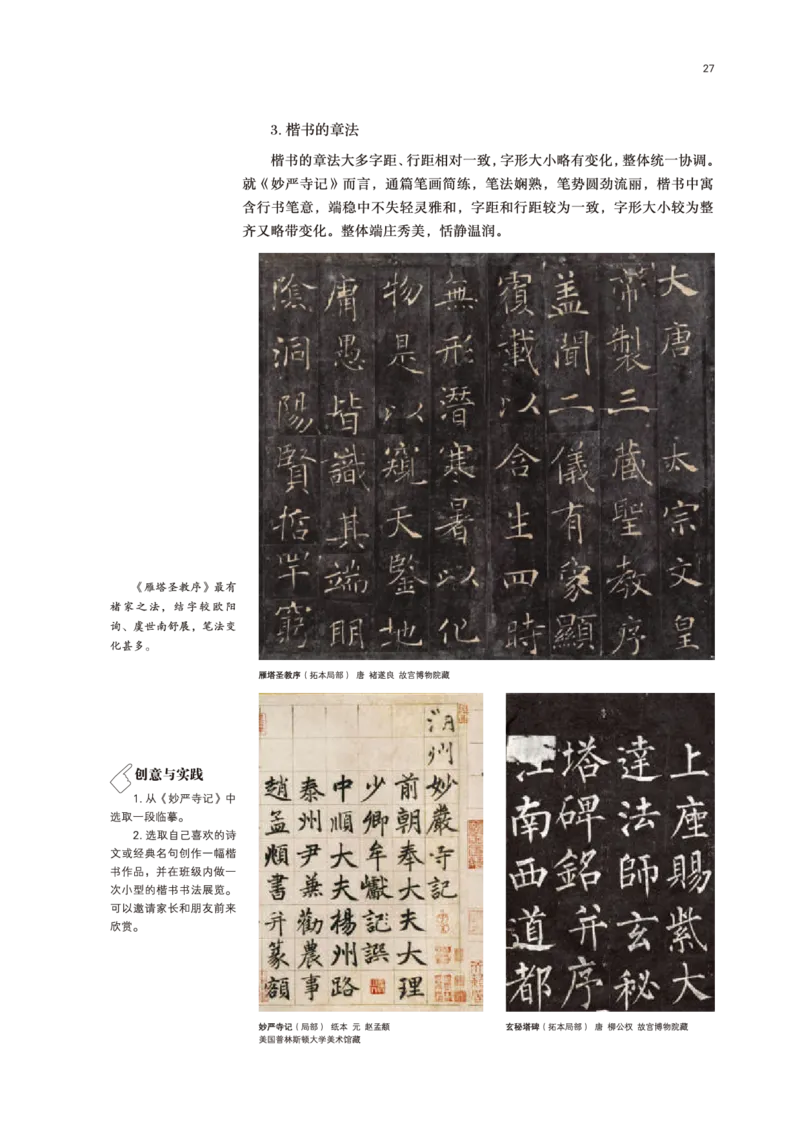 27
3. 楷书的章法
楷书的章法大多字距、行距相对一致，字形大小略有变化，整体统一协调。
就《妙严寺记》而言，通篇笔画简练，笔法娴熟，笔势圆劲流丽，楷书中寓
含行书笔意，端稳中不失轻灵雅和，字距和行距较为一致，字形大小较为整
齐又略带变化。整体端庄秀美，恬静温润。
大唐 太宗文皇
帝製三藏聖教序
盖聞二儀有象顯
覆載以含生四時
無形潛寒暑以化
物是以窺天鑒地
庸愚皆識其端明
陰洞陽賢哲罕窮
《雁塔圣教序》最有
褚家之法，结字较欧阳
询、虞世南舒展，笔法变
化甚多。
雁塔圣教序（拓本局部） 唐 褚遂良 故宫博物院藏
湖州妙嚴寺記
前朝奉大夫大理
少卿牟巘記譔
中順大夫楊州路
泰州尹兼勸農事
趙孟頫書并篆額
上座賜紫大
達法師玄秘
塔碑銘并序
江南西道都
创意与实践
1. 从《妙严寺记》中
选取一段临摹。
2. 选取自己喜欢的诗
文或经典名句创作一幅楷
书作品，并在班级内做一
次小型的楷书书法展览。
可以邀请家长和朋友前来
欣赏。
妙严寺记（局部） 纸本 元 赵孟頫
美国普林斯顿大学美术馆藏
玄秘塔碑（拓本局部） 唐 柳公权 故宫博物院藏